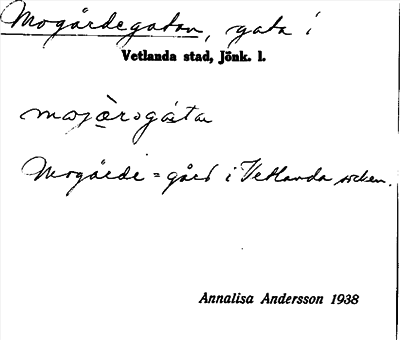 Mogärdegatan, gata i
Vetlanda stad, Jönk. l.
Mogärde = gård i Vetlanda socken.
Annalisa Andersson 1938